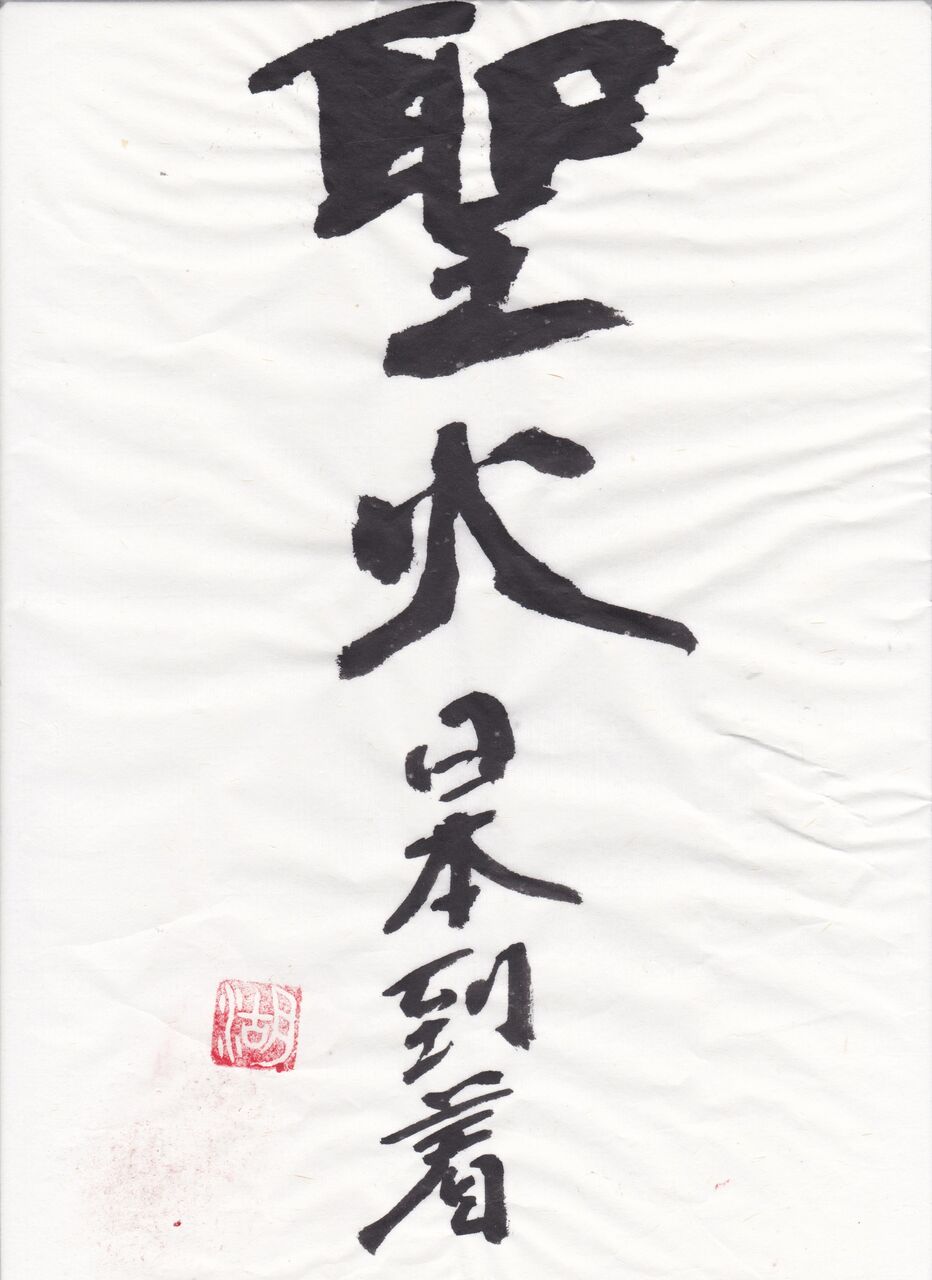 聖火日本到着
湖